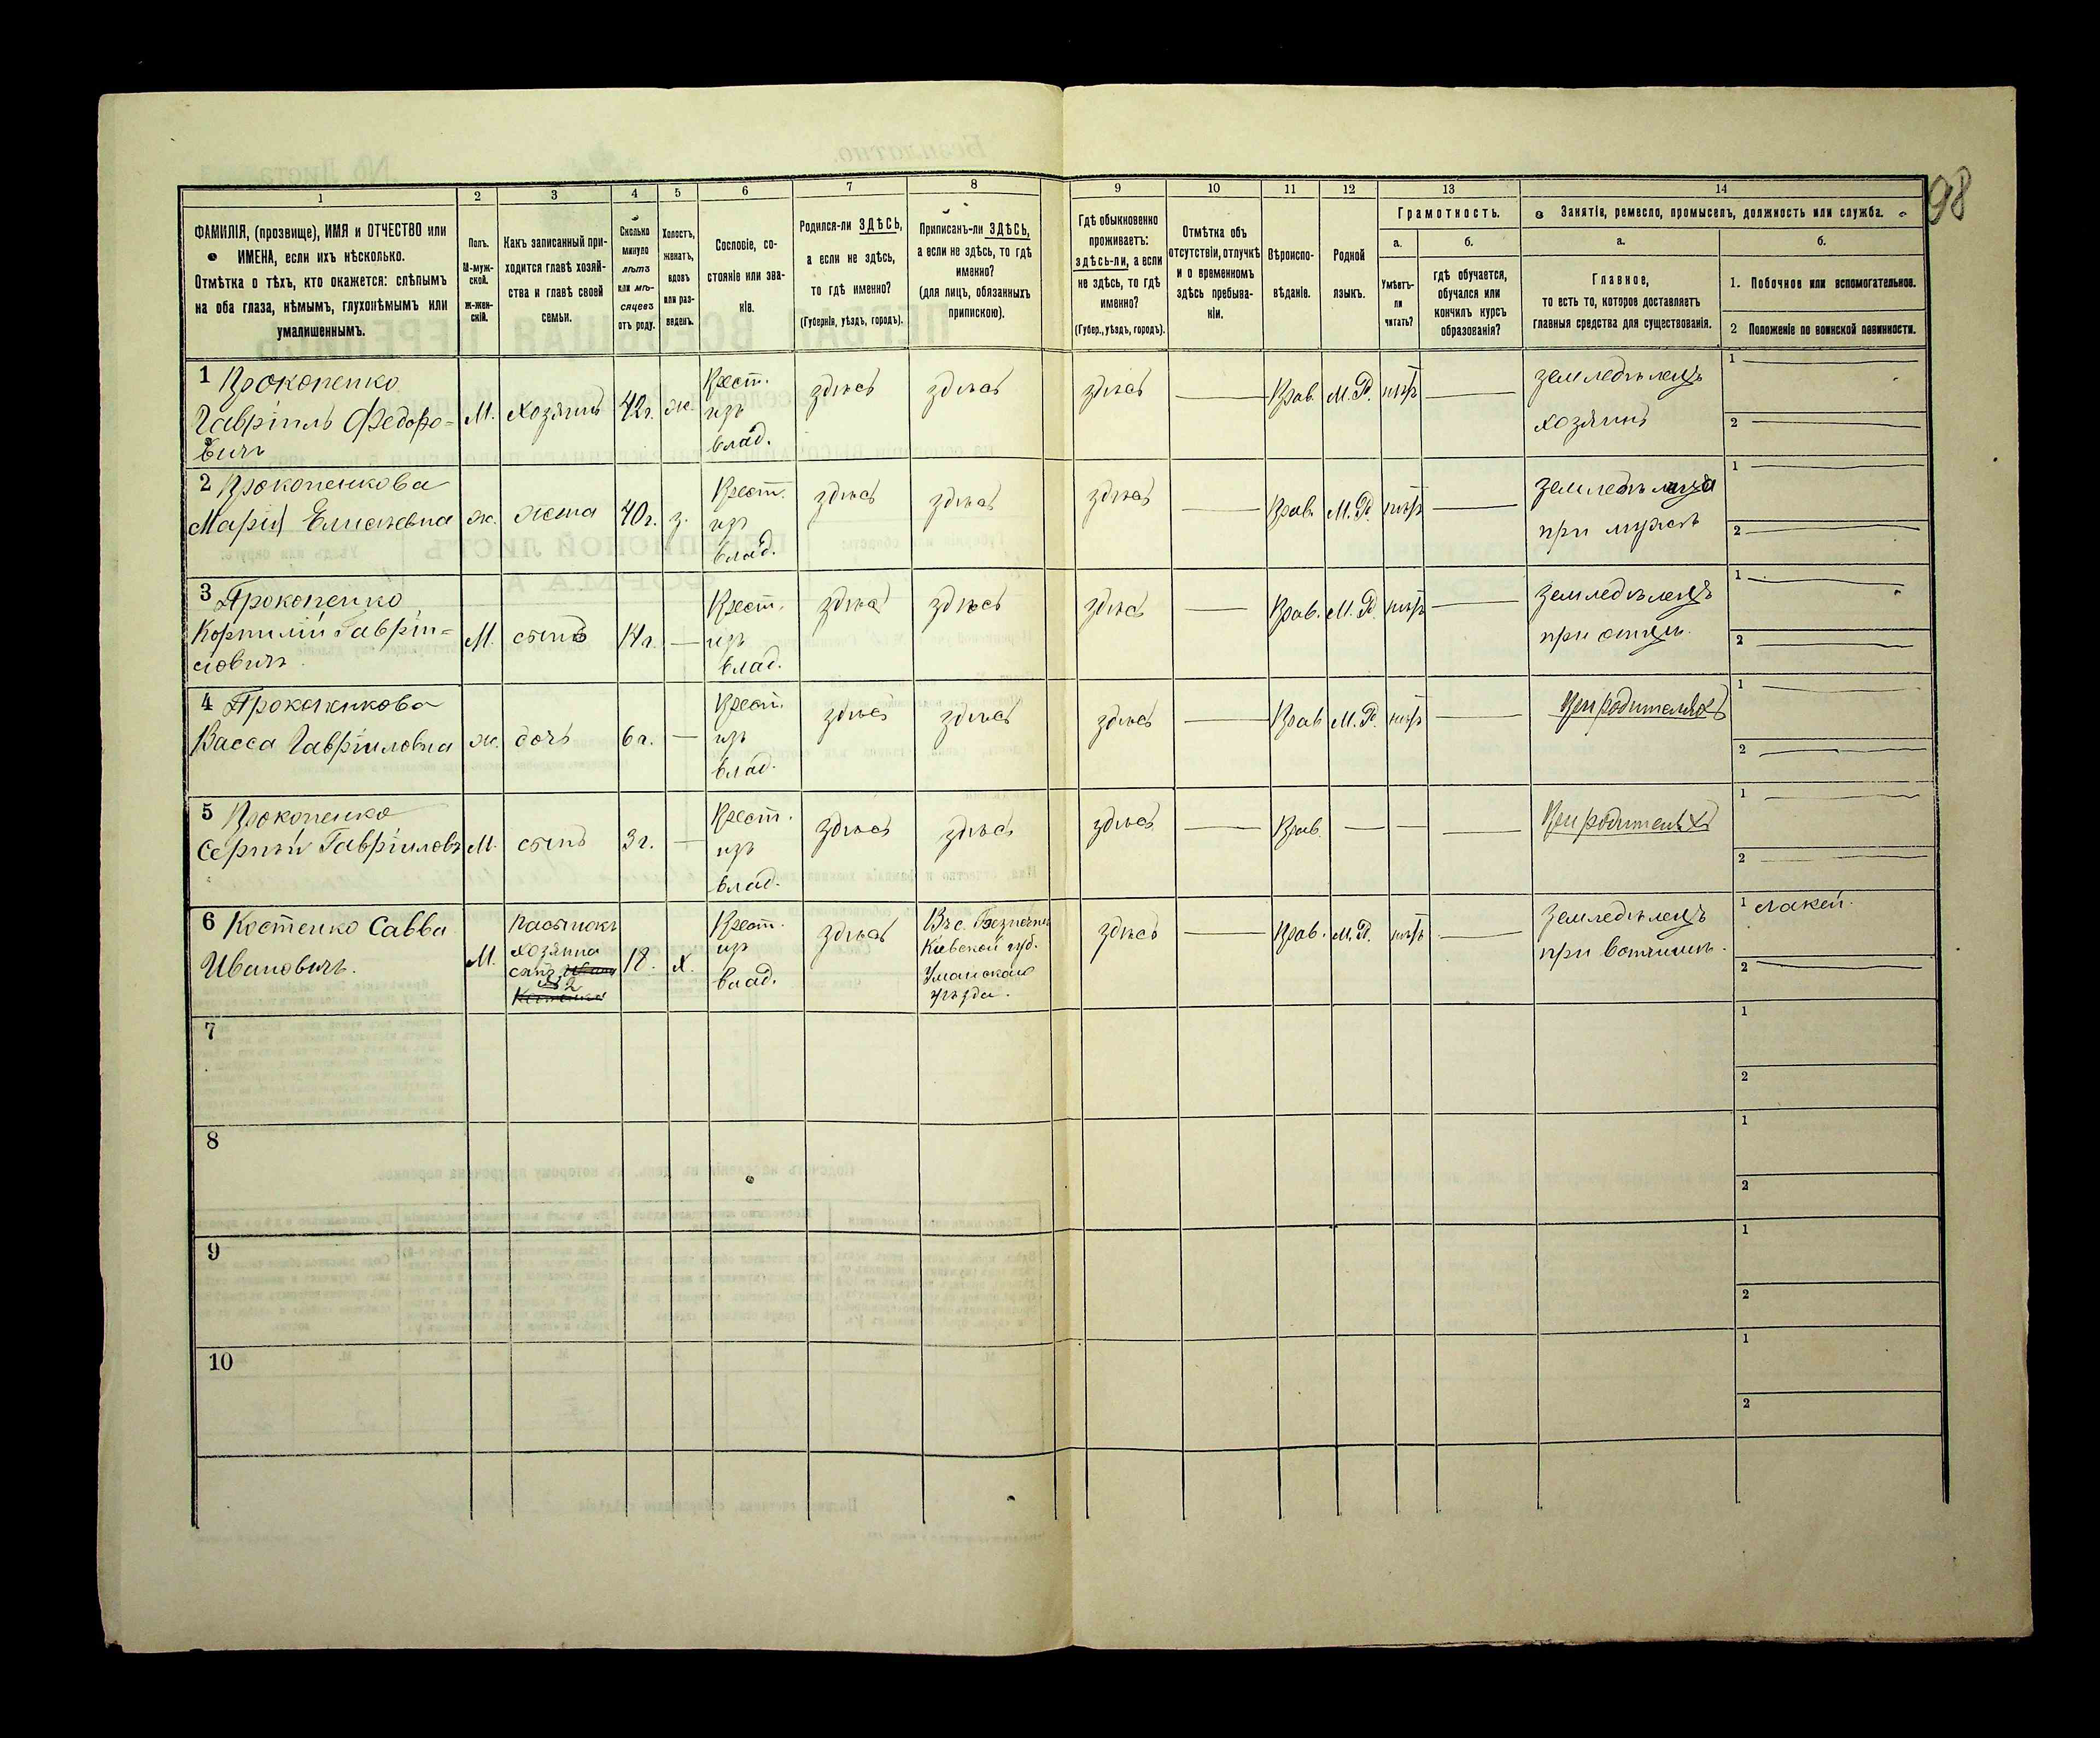 98
1 2 3 4 5 6 7 8 9 10 11 12 13 14
ФАМИЛІЯ, (прозвище), ИМЯ и ОТЧЕСТВО или
ИМЕНА, если ихъ нѣсколько.
Отмѣтка о тѣхъ, кто окажется: слѣпымъ
на оба глаза, нѣмымъ, глухонѣмымъ или
умалишеннымъ.
Полъ.
М-муж-
ской.
Ж-жен-
скій.
Какъ записанный при-
ходится главѣ хозяй-
ства и главѣ своей
семьи.
Сколько
минуло
лѣтъ
или мѣ-
сяцевъ
отъ роду.
Холостъ,
женатъ,
вдовъ
или раз-
веденъ.
Сословіе, со-
стояніе или зва-
ніе.
Родился-ли ЗДѢСЬ,
а если не здѣсь,
то гдѣ именно?
(Губернія, уѣздъ, городъ).
Приписанъ-ли ЗДѢСЬ,
а если не здѣсь, то гдѣ
именно?
(для лицъ, обязанныхъ
припискою).
Гдѣ обыкновенно
проживаетъ:
здѣсь-ли, а если
не здѣсь, то гдѣ
именно?
(Губер., уѣздъ, городъ).
Отмѣтка объ
отсутствіи, отлучкѣ
и о временномъ
здѣсь пребыва-
ніи.
Вѣроиспо-
вѣданіе.
Родной
языкъ.
Грамотность.
а.
Умѣетъ-
ли
читать?
б.
гдѣ обучается,
обучался или
кончилъ курсъ
образованія?
Занятіе, ремесло, промыселъ, должность или служба.
а.
Главное,
то есть то, которое доставляетъ
главныя средства для существованія.
б.
1. Побочное или вспомогательное.
2 Положеніе по воинской повинности.
1 Прокопенко
Гавріилъ Федоро-
вичъ
М. Хозяинъ 42г. ж.
Крест.
изъ
влад.
здѣсь здѣсь здѣсь Прав. М. Р. нѣтъ
земледѣлецъ
хозяинъ
1
2
2 Прокопенкова
Марія Елисѣевна
ж. жена 40г. з.
Крест.
изъ
влад.
здѣсь здѣсь здѣсь Прав. М. Р. нѣтъ
при мужѣ
1
2
3 Прокопенко
Корнилій Гавріи-
ловичъ
М. сынъ 14г.
Крест.
изъ
влад.
здѣсь здѣсь здѣсь Прав. М. Р. нѣтъ
земледѣлецъ
при отцѣ.
1
2
4 Прокопенкова
Васса Гавріиловна
ж. дочь 6г.
Крест.
изъ
влад.
здѣсь здѣсь здѣсь Прав. М. Р. нѣтъ
При родителяхъ
1
2
5 Прокопенко
Сергѣй Гавріиловъ
М. сынъ 3г.
Крест.
изъ
влад.
здѣсь здѣсь здѣсь Прав.
При родителяхъ
1
2
6 Костенко Савва
Ивановичъ.
М.
Пасынокъ
хозяина
сынъ
2
18. х.
Крест.
изъ
влад.
здѣсь
Кіевской губ.
Уманскаго
уѣзда.
здѣсь Прав. М. Р. нѣтъ
земледѣлецъ
при вотчимѣ.
1 лакей.
2
7
1
2
8
1
2
9
1
2
10
1
2